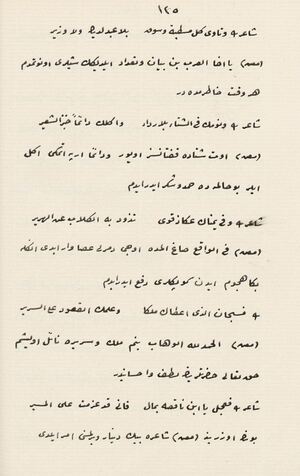 ١٢٥
شاعر ﴾ وتأوى كل مصطبة وسوق بلا عبد لديك ولا وزير
(معن) يا اخا العرب بن بيان وتعداد ايلديكك شيلرى اونوتمدم
هر وقت خاطرمده در
شاعر ﴾ ونومك فى الشتاء بلا رداء واكلك دائماً خبز الشعير
(معن) اوت شتاده قفتانسز اويور ودائما ارپه اتمكى اكل
ايدر بو حالمده ده حمد و شكر ايدر ايدم
شاعر ﴾ وفى يمناك عكاز قوى تذود به الكلاب عن الهرير
(معن) فى الواقع صاغ المده اوجى دمرلى عصا وار ايدى انكله
بكا هجوم ايدن كوپكلرى دفع ايدر ايدم
﴾ فسبحان الذى اعطاك ملكا وعلمك القعود على السرير
(معن) الحمد لله الوهاب بنم ملك وسريره نائل اوليشم
حق تعالى حضرتلرينك لطف واحسانيدر
شاعر ﴾ فعجل يا ابن ناقصة بمال فانى قد عزمت على المسير
بونك اوزرينه (معن) شاعره بيك دينار ويرلمسنى امر ايلدى